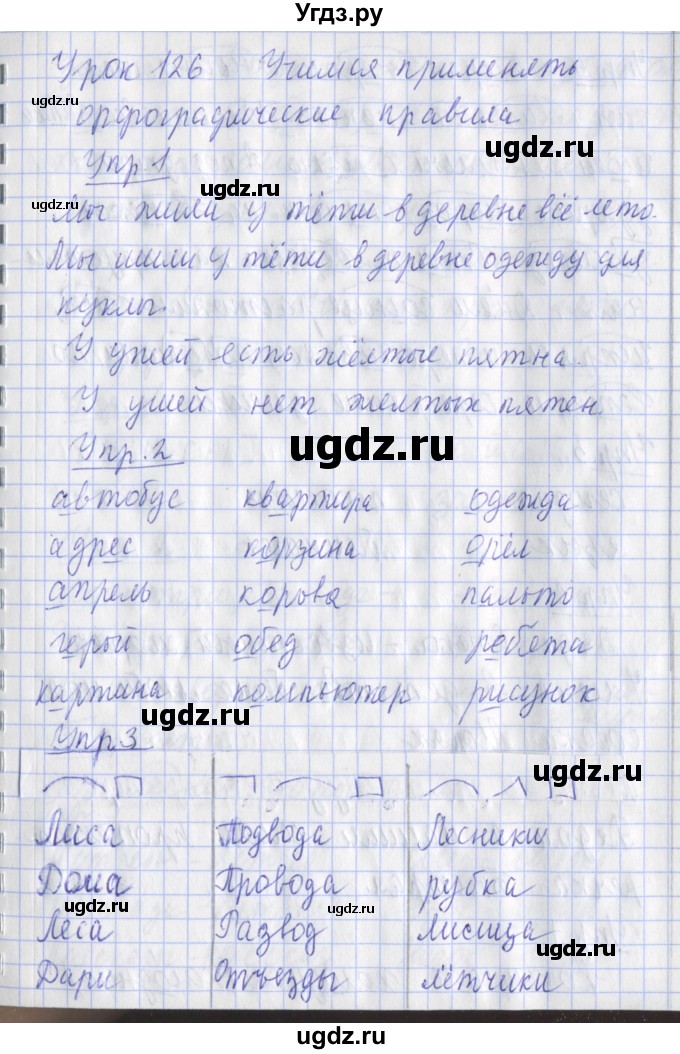 Угдз.ру
Урок 126 Учимся применять
орфографические правила
Упр 1
Мы жили у тёти в деревне всё лето.
Мы шили у тёти в деревне одежду для
куклы.
У ужей есть жёлтые пятна.
У ушей нет желтых пятен.
Упр. 2
автобус квартира одежда
адрес корзина орёл
апрель корова пальто
герой обед ребята
картина компьютер рисунок
Упр 3
Лиса Подвода Лесники
Дома Провода рубка
Леса Развод лисица
Дари Отъезды лётчики
ugdz.ru
ugdz.ru
ugdz.ru
ugdz.ru
ugdz.ru
ugdz.ru
ugdz.ru
ugdz.ru
ugdz.ru
ugdz.ru
ugdz.ru
ugdz.ru
ugdz.ru
ugdz.ru